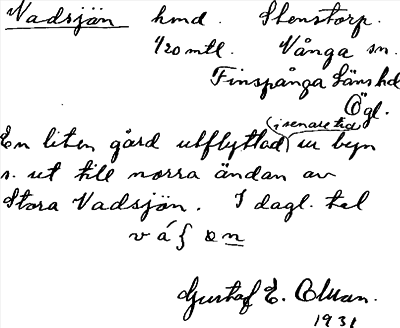 Vadsjön hmd. Stenstorp.
1/20 mtl. Vånga sn.
Finspånga läns hd
Ögl.
En liten gård utflyttad (i senare tid) ur byn
s. ut till norra ändan av
Stora Vadsjön. I dagl. tal
Gustaf E. Ollman.
1931